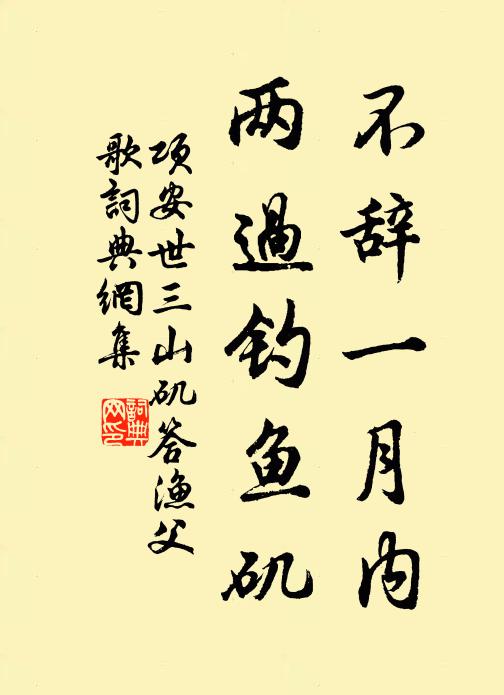 不辞一月内
两過钓鱼矶
项安世三山矶答渔父
歌詞典網集
詞典网印